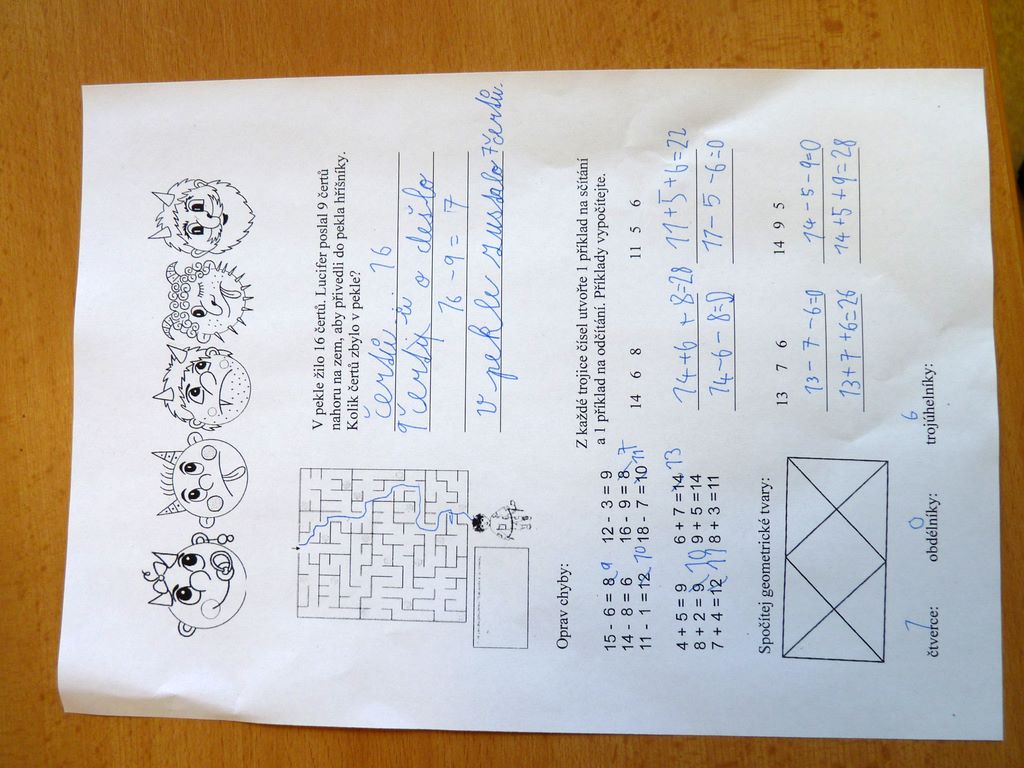 V pekle žilo 16 čertů. Lucifer poslal 9 čertů
nahoru na zem, aby přivedli do pekla hříšníky.
Kolik čertů zbylo v pekle?
čertů 16
čertů o dešlo
16 - 9 = 7
V pekle zustalo 7 čertů.
Oprav chyby:
15 - 6 = 8 9
12 - 3 = 9
14 - 8 = 6
16 - 9 = 8 7
11 - 1 = 12 10
18 - 7 = 10 11
4 + 5 = 9
6 + 7 = 14 13
8 + 2 = 9 10
9 + 5 = 14
7 + 4 = 12 11
8 + 3 = 11
Z každé trojice čísel utvořte 1 příklad na sčítání
a 1 příklad na odčítání. Příklady vypočítejte.
14 6 8
11 5 6
14+6 + 8=28
11+5+6=22
14-6-8=0
11-5-6=0
13 7 6
14 9 5
13-7-6=0
14-5-9=0
13+7+6=26
14+5+9=28
Spočítej geometrické tvary:
čtverce: 1
obdélníky: 0
trojúhelníky: 6